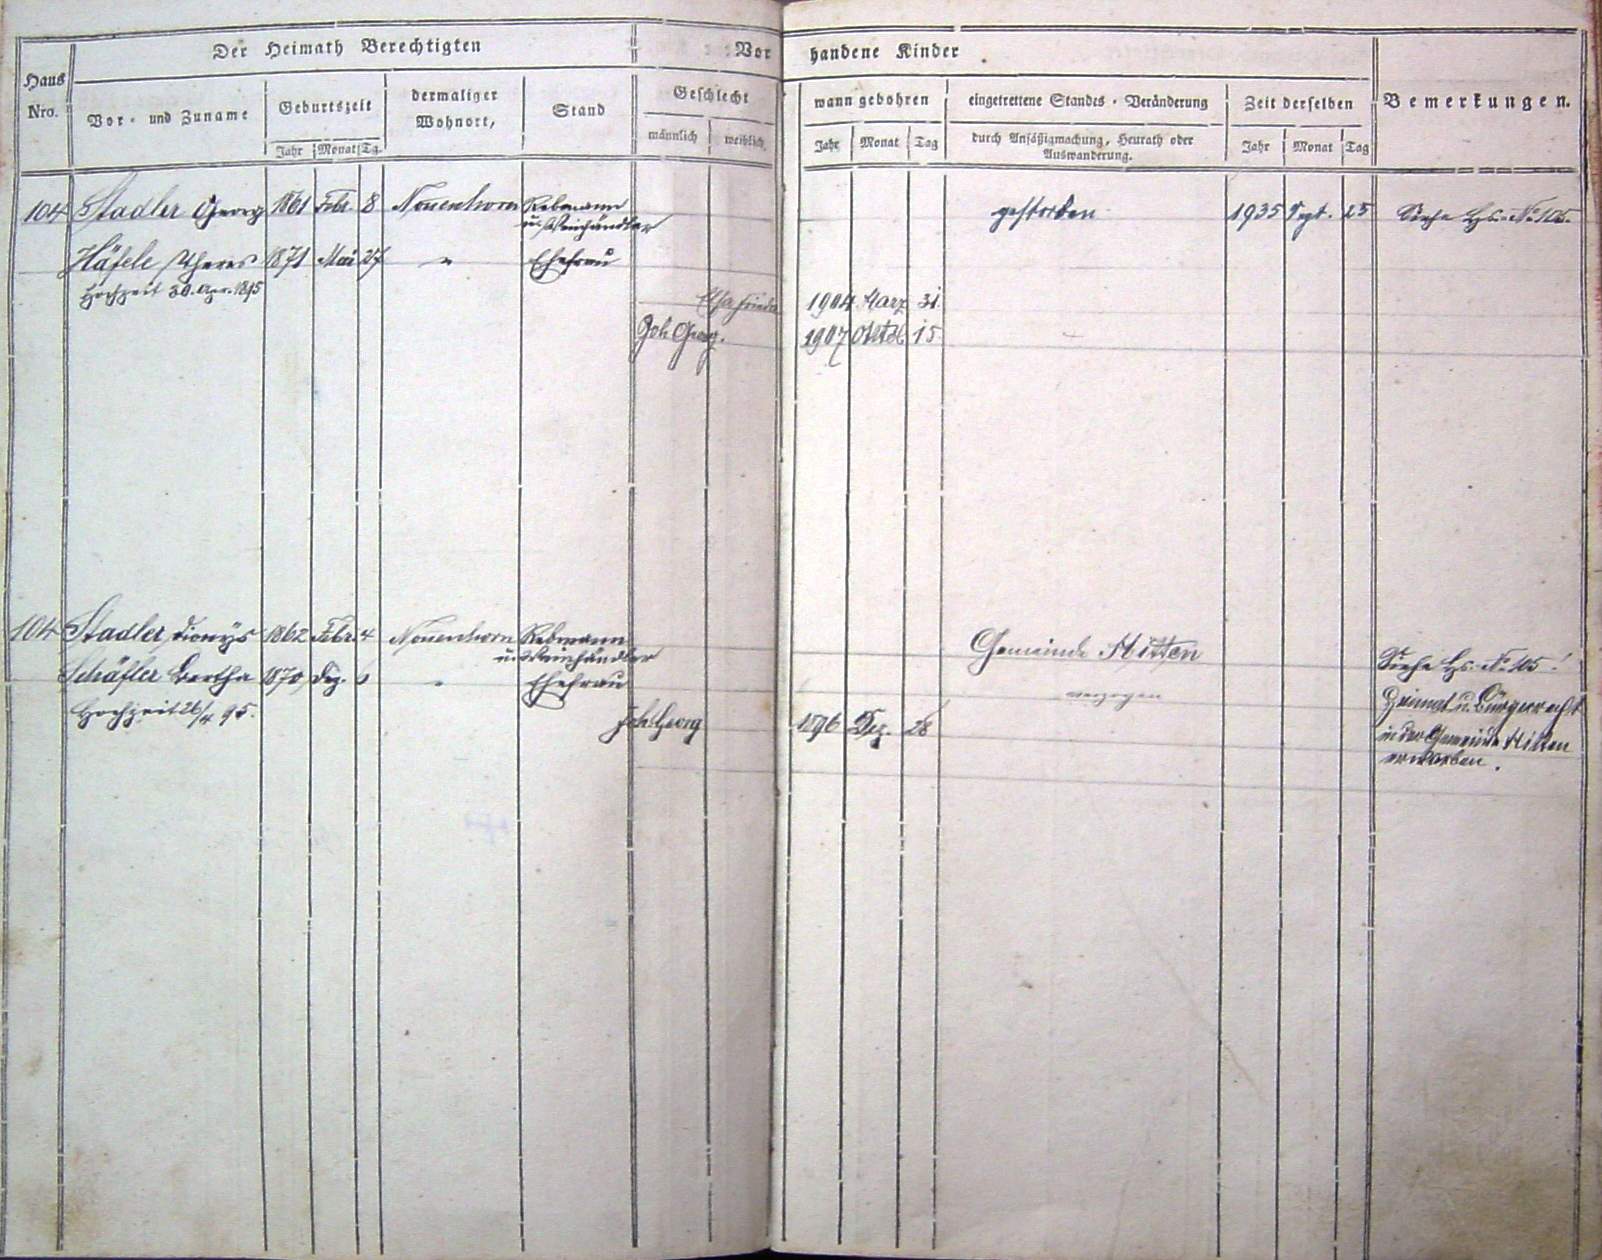 Der Heimath Berechtigten
Vorhandene Kinder
Haus Nro.
Vor- und Zuname
Geburtszeit
Jahr Monat Tg.
dermaliger Wohnort,
Stand
Geschlecht
männlich weiblich.
wann gebohren
Jahr Monat Tag
eingetrettene Standes-Veränderung
durch Ansäßigmachung, Heurath oder
Auswanderung.
Zeit derselben
Jahr Monat Tag
Bemerkungen.
104 Stadler Georg 1861 Febr. 8 Nonnenhorn Rebmann gestorben 1935 Sept. 25 Siehe Hs. No 105.
u. Weinhändler
Häfele Theres 1871 Mai 27 " Ehefrau
Hochzeit 30. Apr. 1895
1904 März 31.
Joh. Georg. 1907 15.
104 Stadler Dionys 1862 Febr. 4 Nonnenhorn Rebmann Gemeinde Mitten
u. Weinhändler Siehe Hs. No 105!
Schäfler Bertha 1870 Dez. 6 " Ehefrau verzogen
Heimat u. Bürgerrecht
Hochzeit 26/4 95.
Joh. Georg 1896 Dez. 28
in der Gemeinde Mitten
erworben.